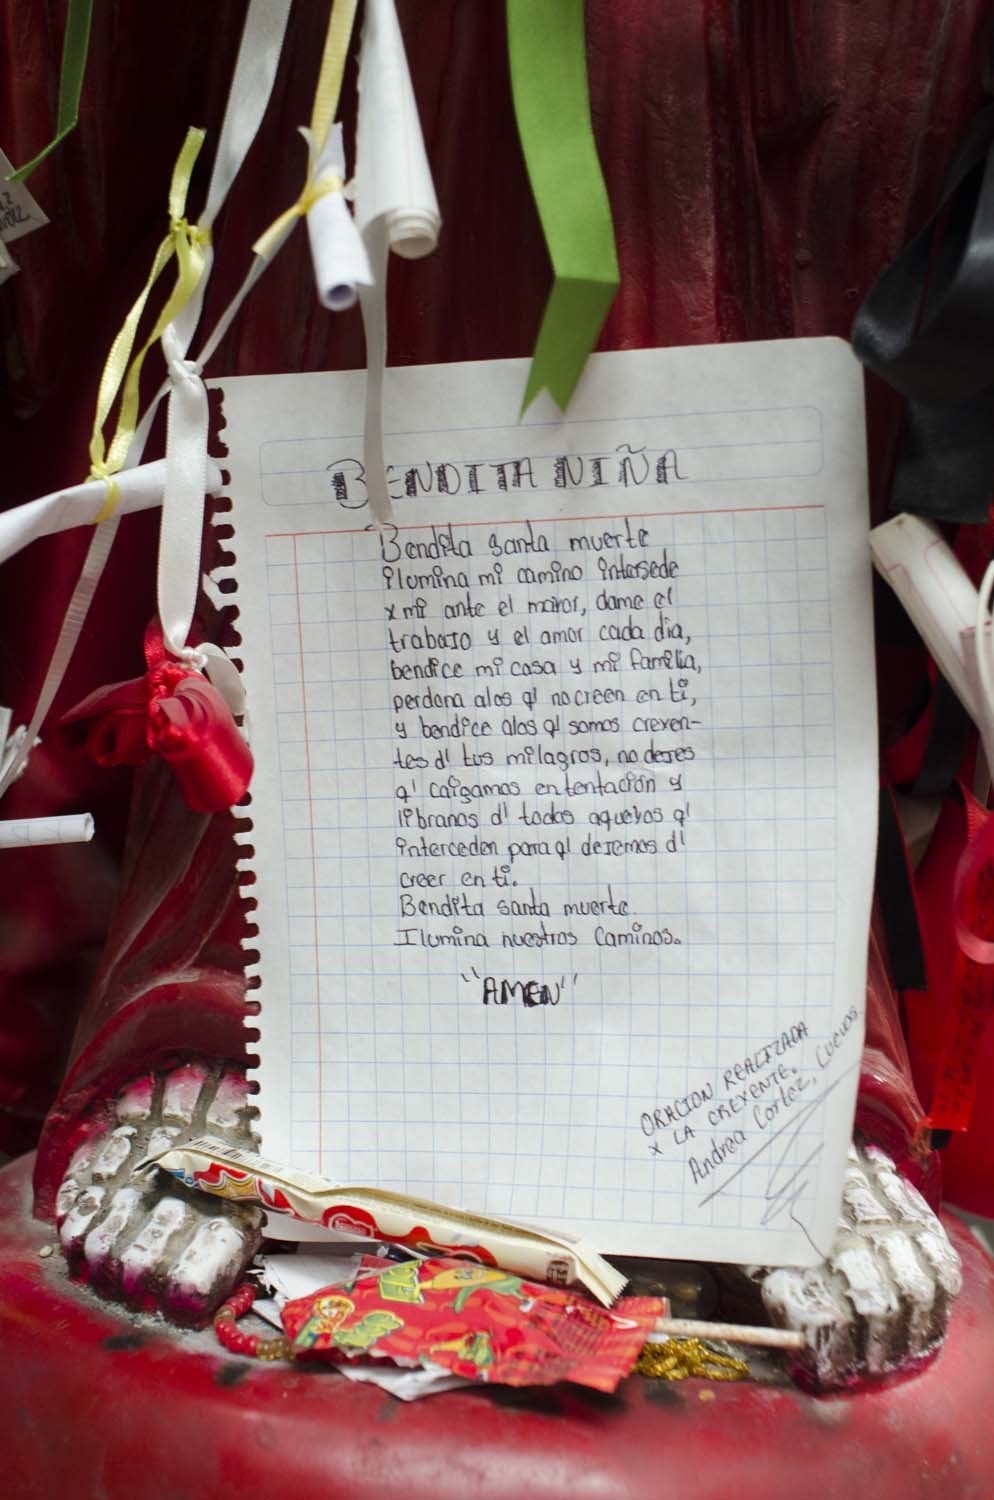 BENDITA NIÑA
Bendita santa muerte
ilumina mi camino intersede
x mi ante el maior, dame el
trabaJo y el amor cada dia,
bendice mi casa y mi familia,
perdona alos q' no creen en ti,
y bendice alos q' somos creyen-
tes d' tus milagros, no deJes
q' caigamos en tentación y
libranos d' todos aquellos q'
interceden para q' deJemos d'
creer en ti.
Bendita santa muerte.
Ilumina nuestros caminos.
"AMEN"
ORACION REALIZADA
X LA CREYENTE.
Andrea Cortez, Cuevas.